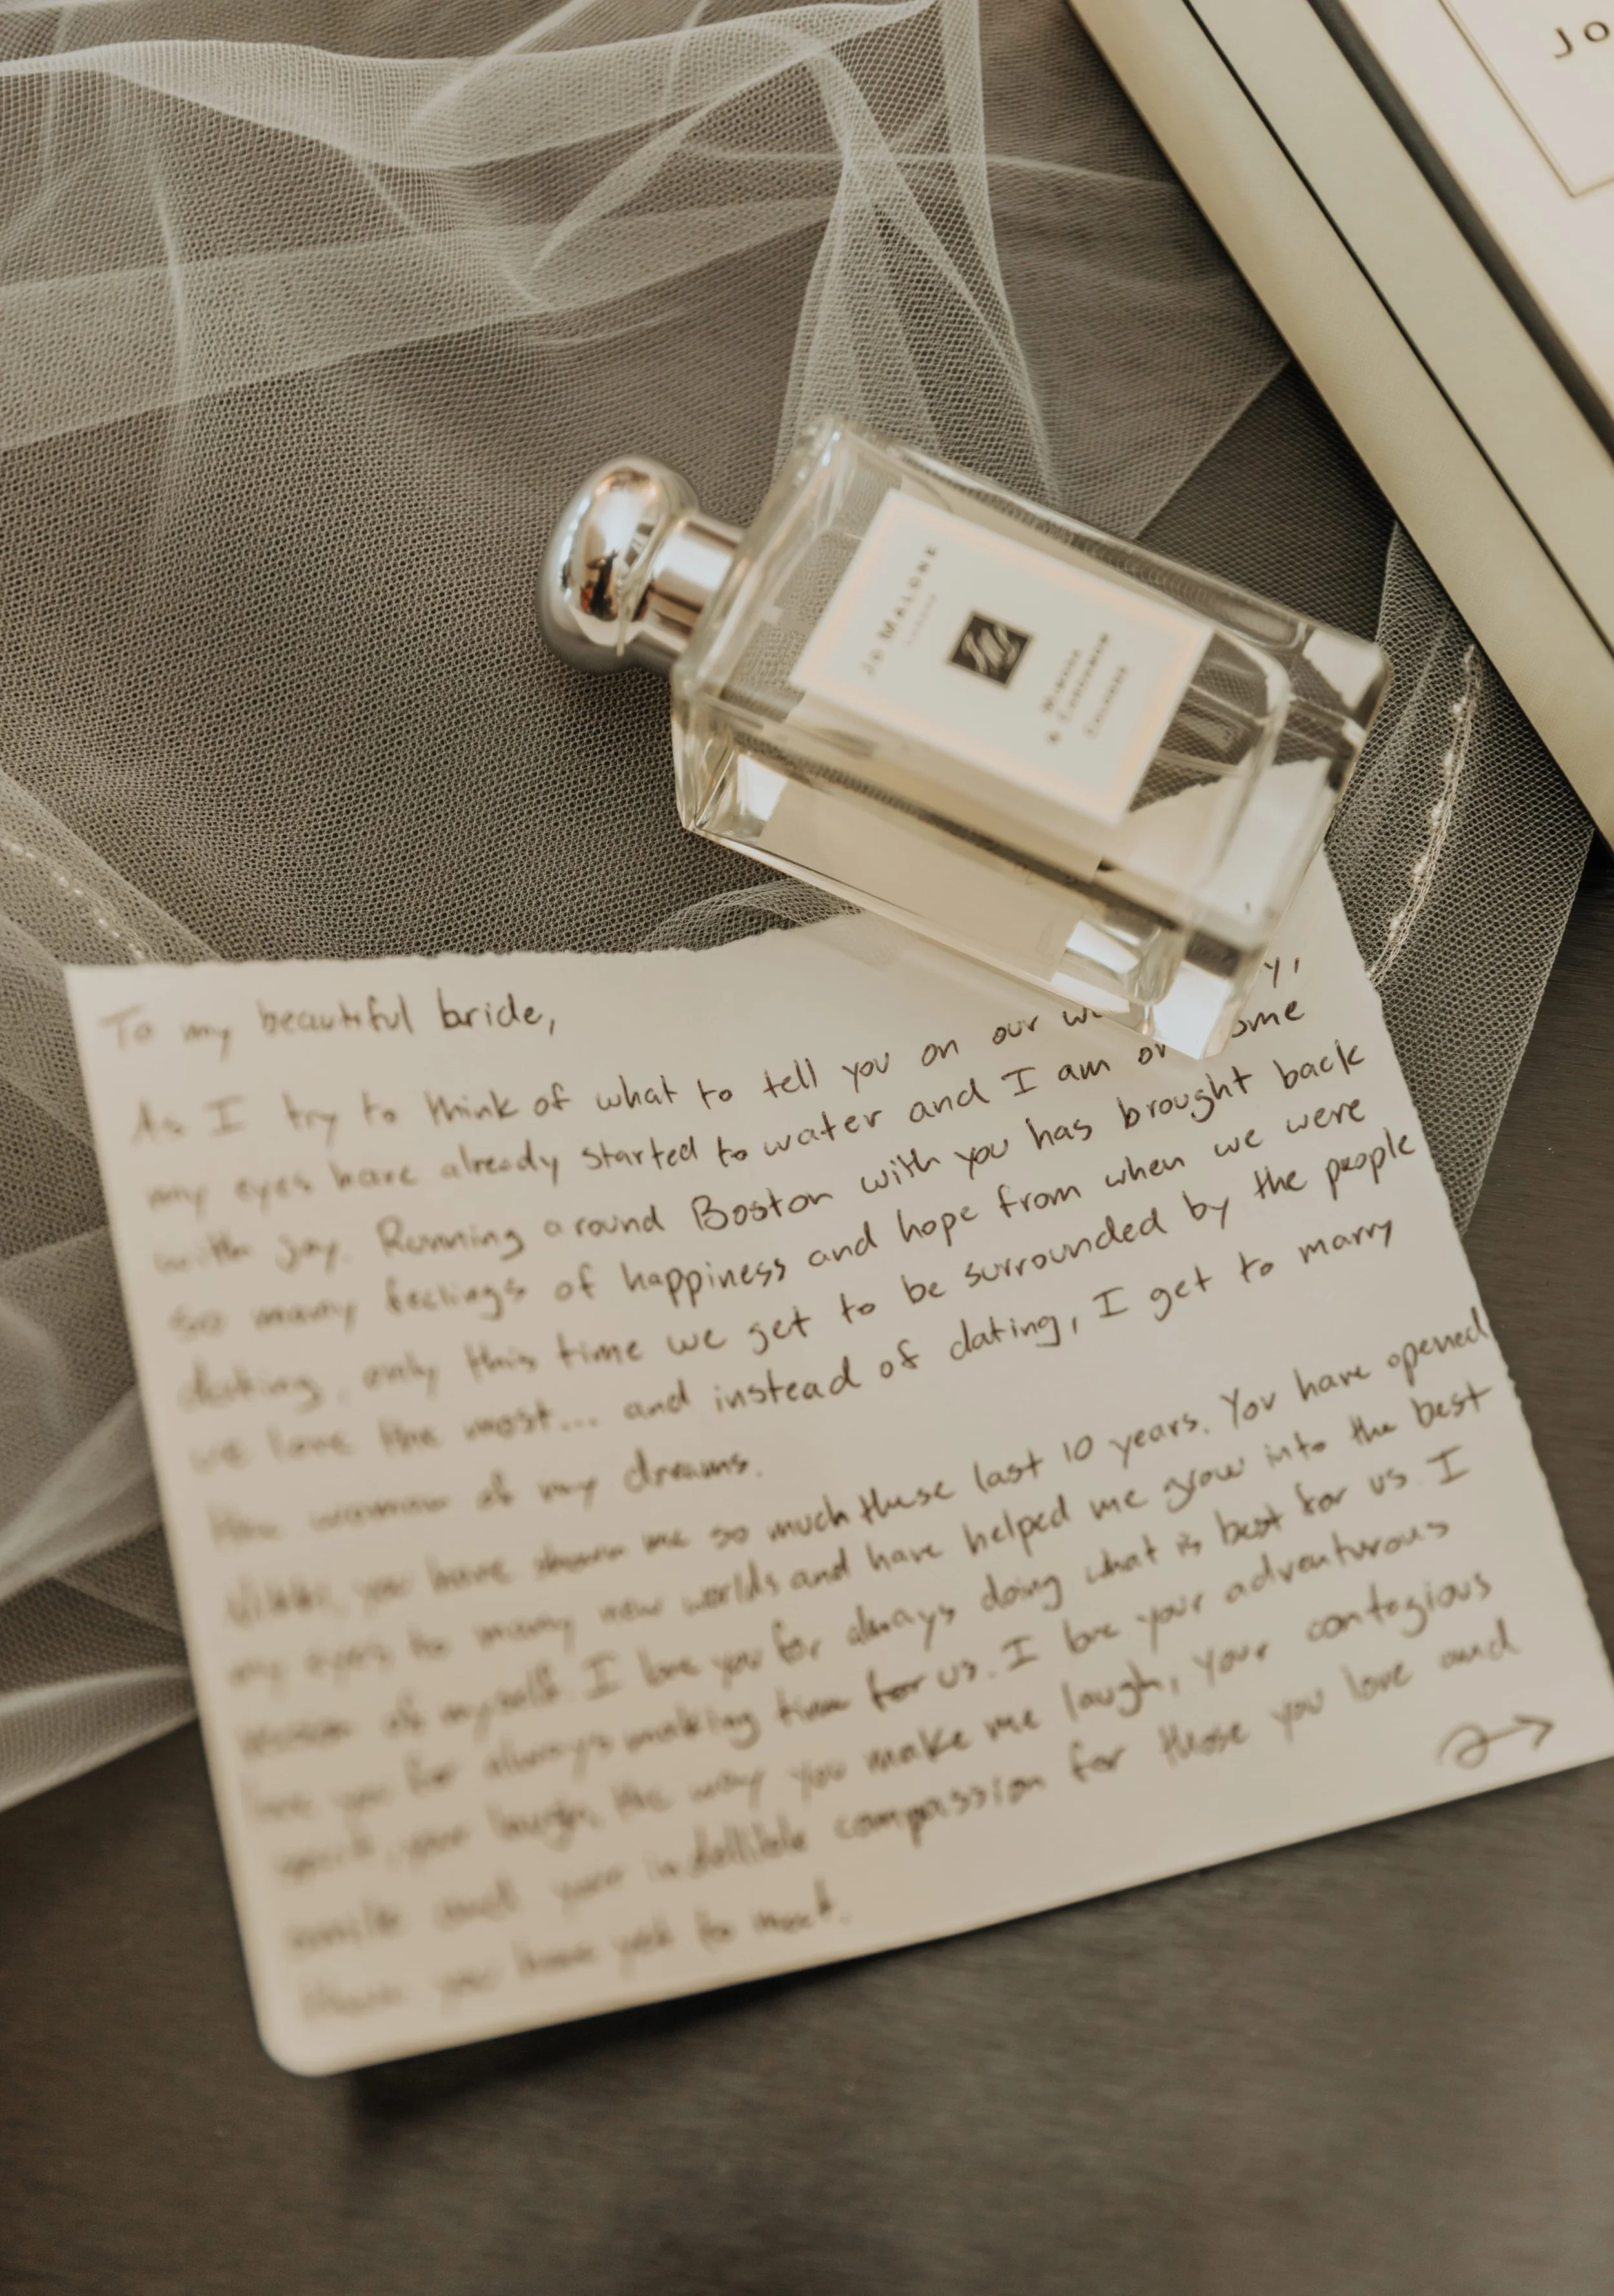 JO
JO MALONE
LONDON
MIMOSA
& CARDAMOM
COLOGNE
To my beautiful bride,
As I try to think of what to tell you on our y,
my eyes have already started to water and I am ome
with joy. Running around Boston with you has brought back
so many feelings of happiness and hope from when we were
dating, only this time we get to be surrounded by the people
we love the most... and instead of dating, I get to marry
the woman of my dreams.
you have shown me so much these last 10 years. You have opened
my eyes to many new worlds and have helped me grow into the best
version of myself. I love you for always doing what is best for us. I
love you for always making time for us. I love your adventurous
spirit, your laugh, the way you make me laugh, your contagious
smile and your indellible compassion for those you love and
those you have yet to meet.